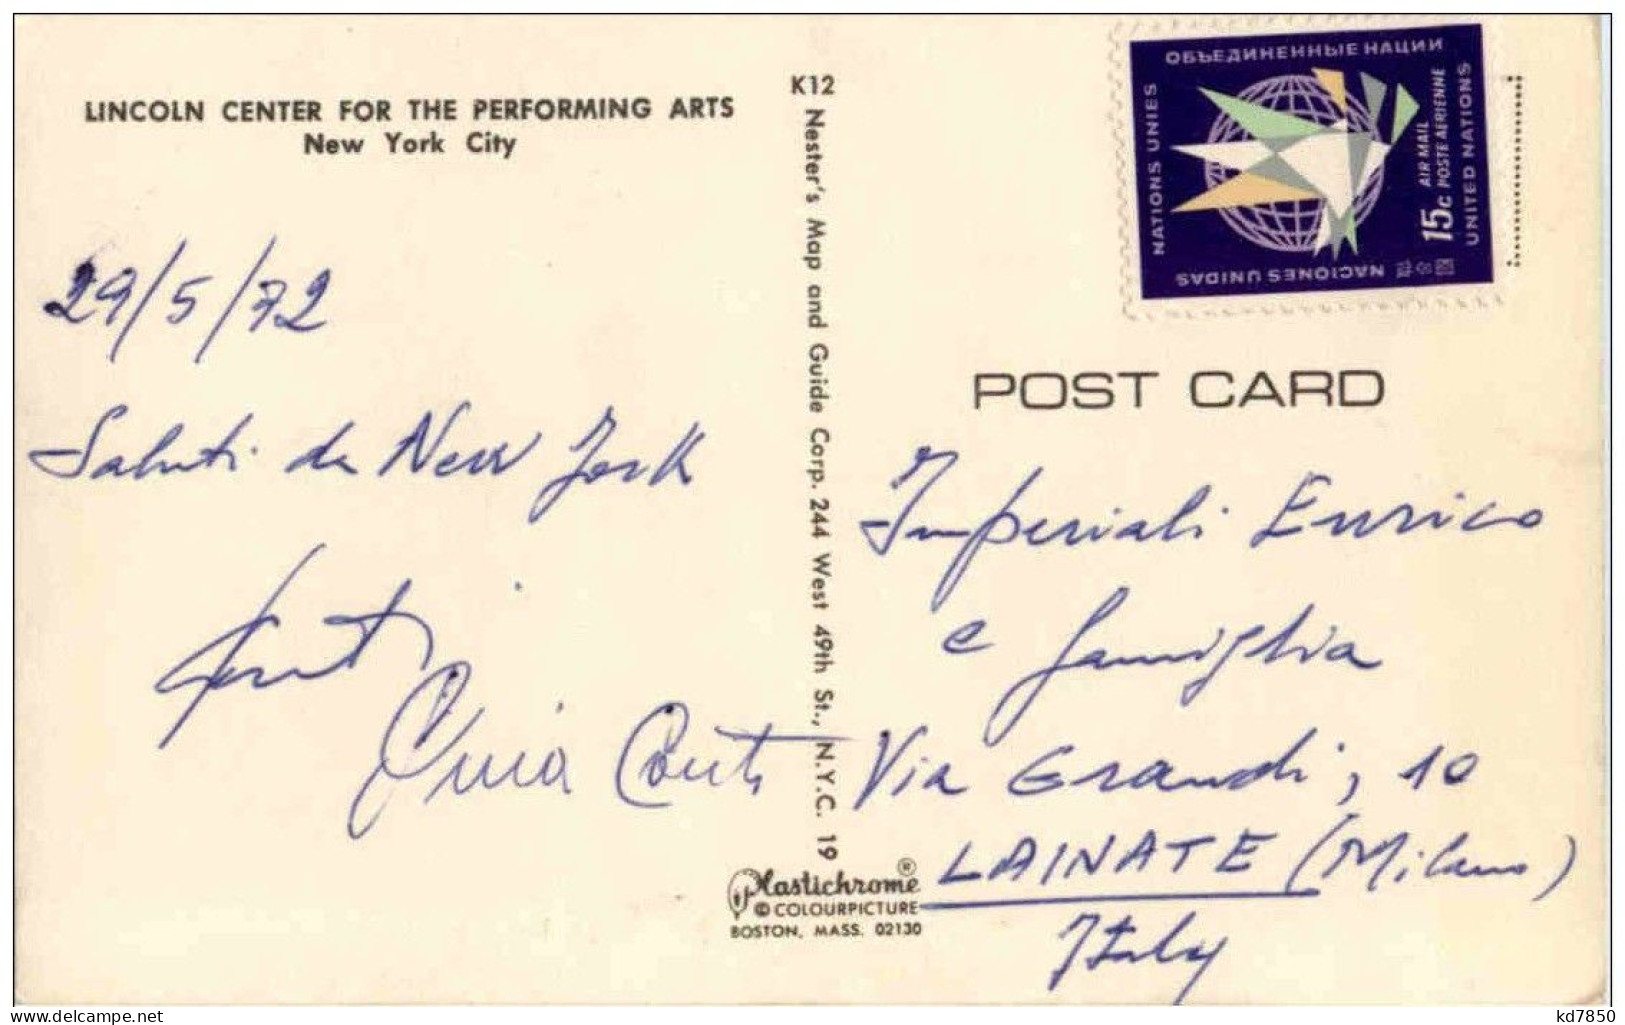 LINCOLN CENTER FOR THE PERFORMING ARTS
New York City
29/5/72
Saluti da New York
Conti
K12
Nester's Map and Guide Corp. 244 West 49th St., N.Y.C. 19
Plastichrome ®
© COLOURPICTURE
BOSTON, MASS. 02130
ОБЪЕДИНЕННЫЕ НАЦИИ
NATIONS UNIES
AIR MAIL
15c POSTE AERIENNE
UNITED NATIONS
NACIONES UNIDAS
POST CARD
Imperiali Enrico
e famiglia
Via Grandi, 10
LAINATE (Milano)
Italy
delcampe.net
kd7850